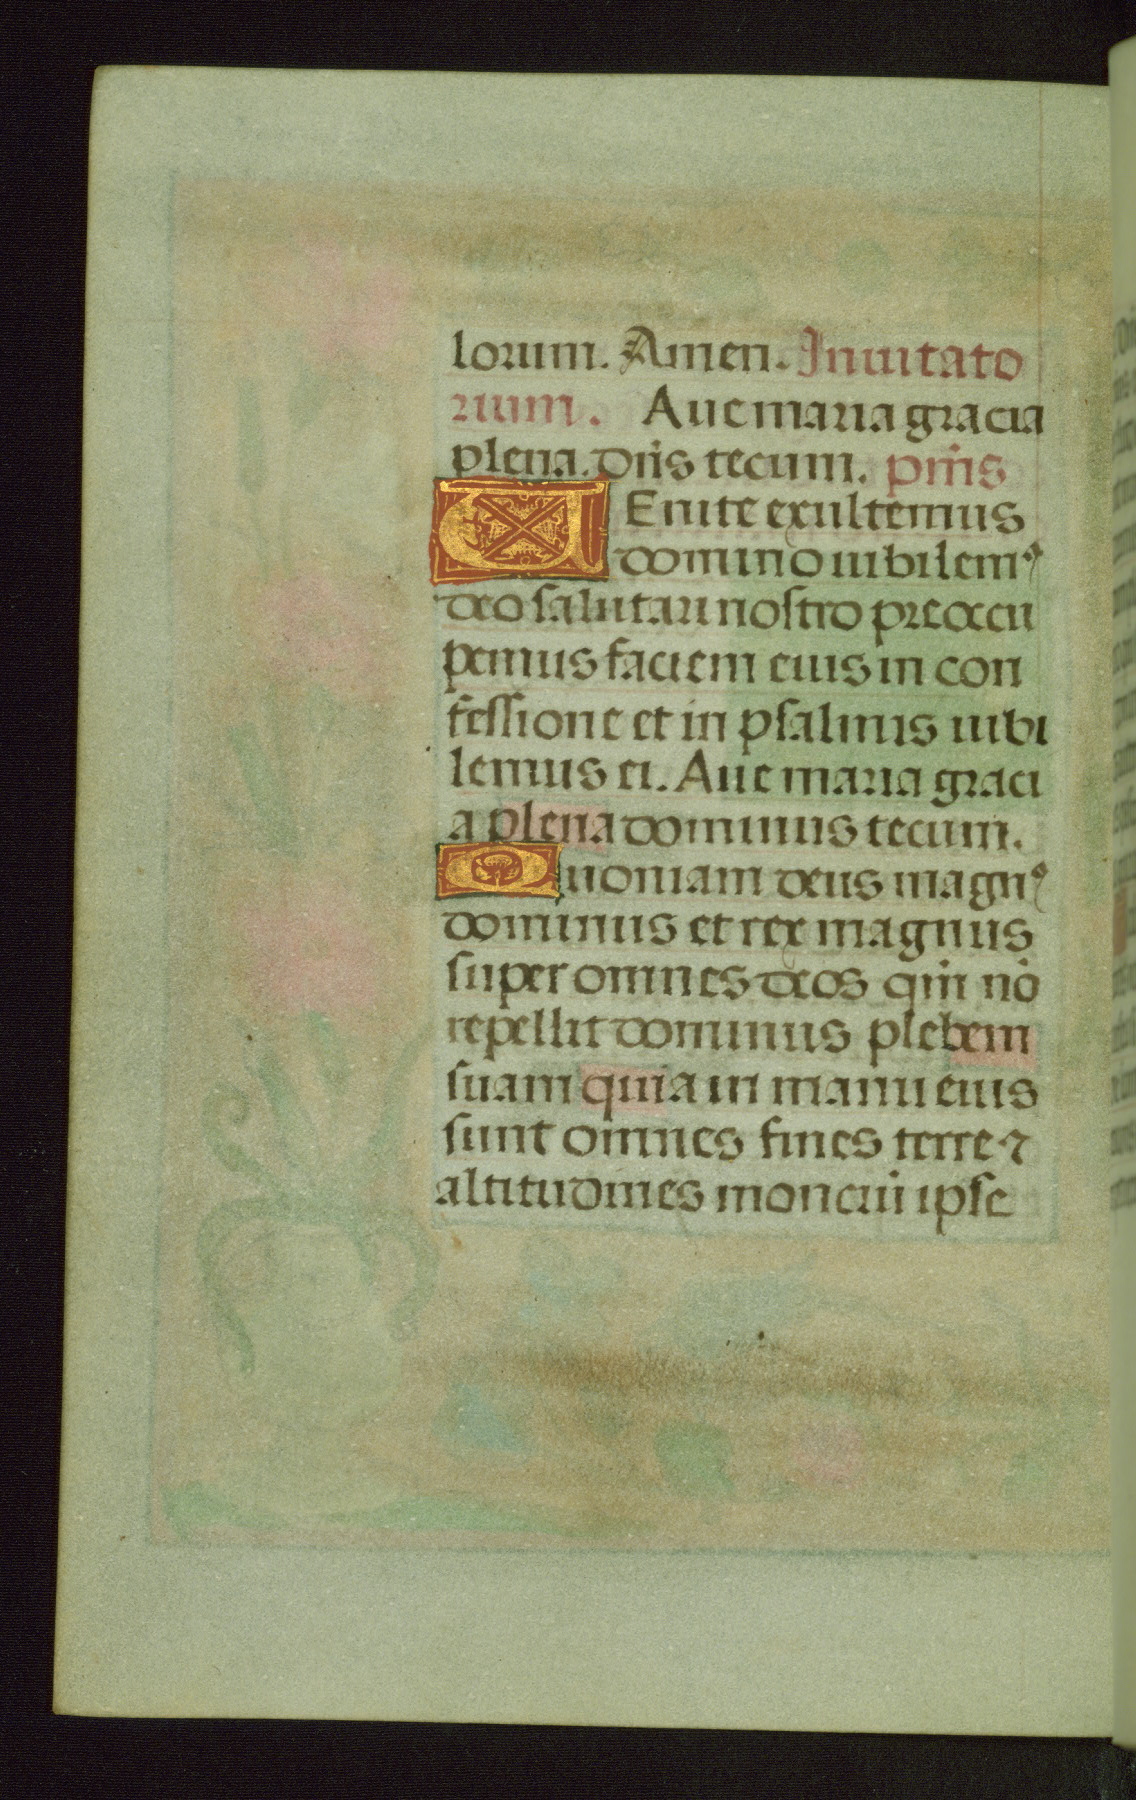 lorum. Amen. Inuitato
rium. Aue maria gracia
plena. Dn̄s tecum. pm̄s
VEnite exultemus
domino iubilemꝰ
deo salutari nostro preoccu
pemus faciem eius in con
fessione et in psalmis iubi
lemus ei. Aue maria graci
a plena dominus tecum.
Quoniam deus magnꝰ
dominus et rex magnus
super omnes deos qm̄ nō
repellit dominus plebem
suam quia in manu eius
sunt omnes fines terre ⁊
altitudines monciū ipse